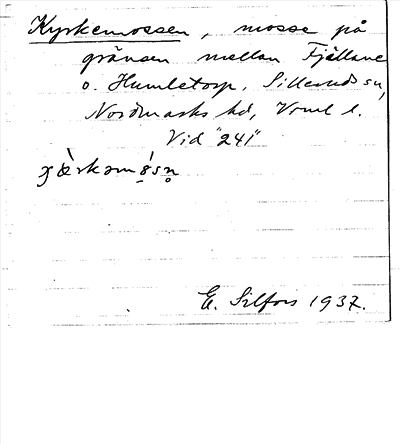 Kyrkemossen, mosse på
gränsen mellan Fjällane
o. Humletorp, Silleruds sn,
Nordmarks hd, Vrml l.
Vid "241"
E. Silfors 1937.